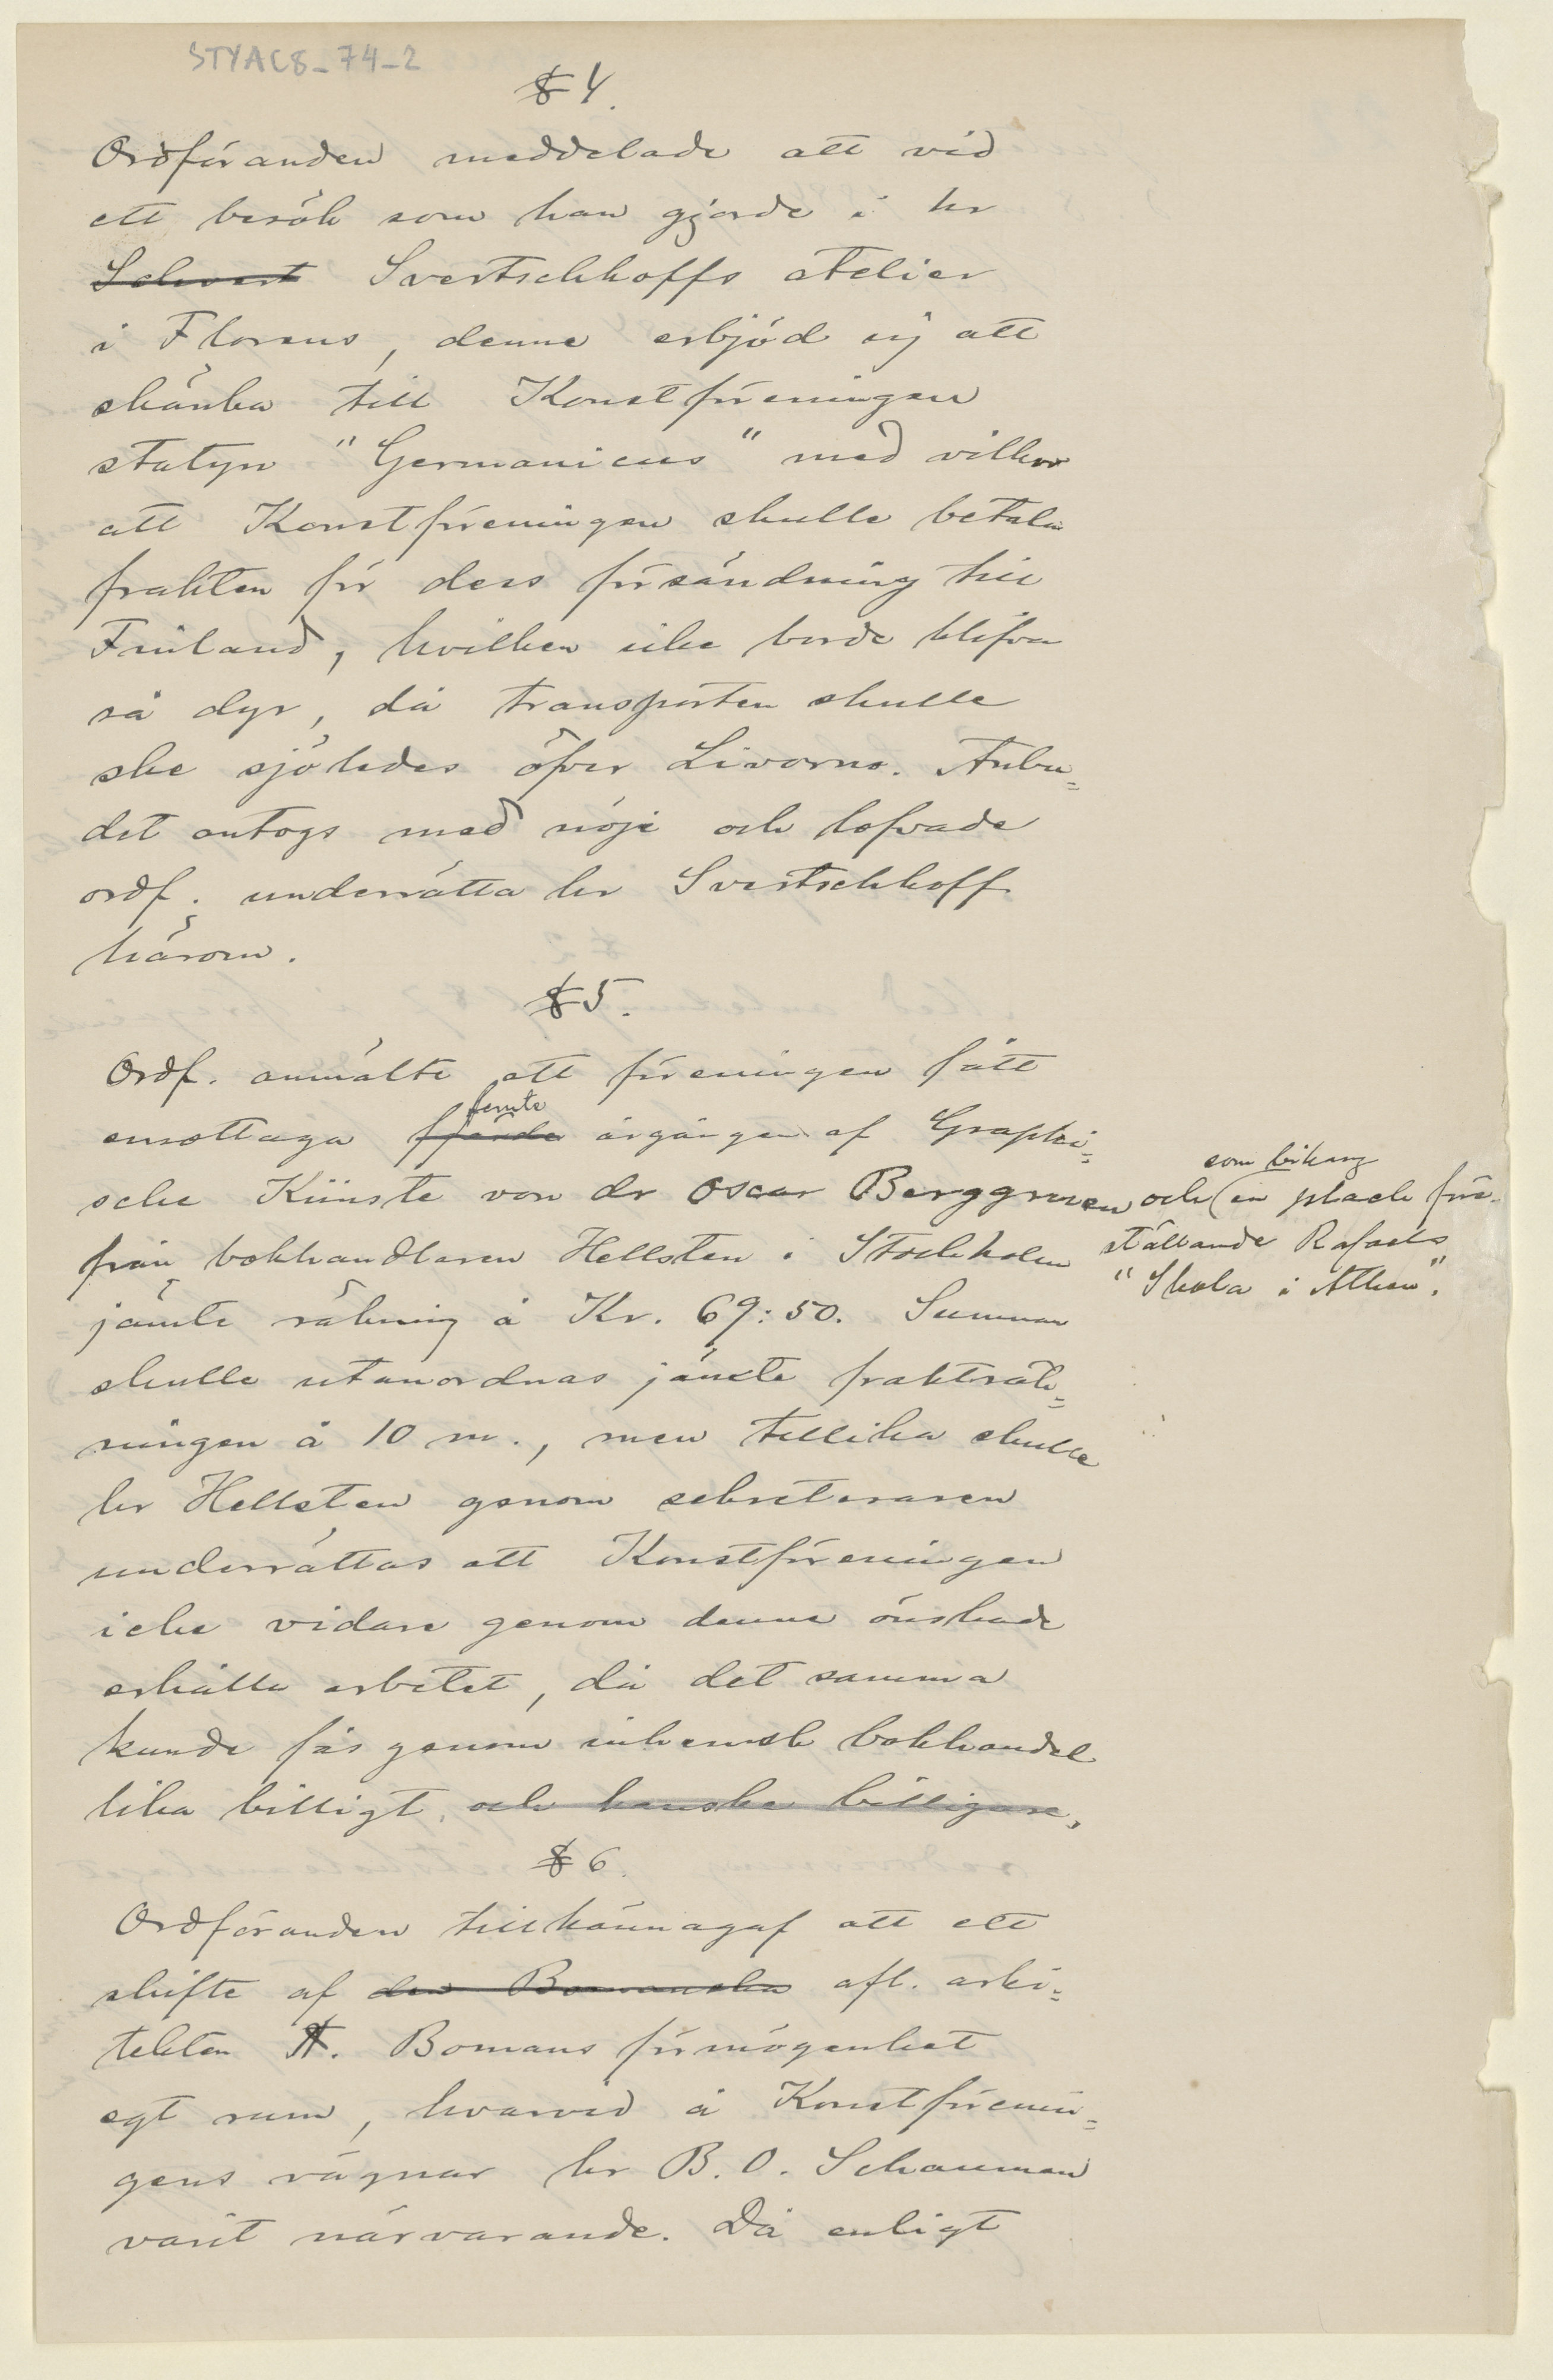 STYAC8_74_2
§ 4.
Ordföranden meddelade att vid
ett besök som han gjorde i hr
Schvert Svertschkoffs atelier
i Florens, denne erbjöd sig att
skänka till Konstföreningen
statyn "Germanicus" med vilkor
att Konstföreningen skulle betala
frakten för dess försändning till
Finland, hvilken icke borde blifva
så dyr, då transporten skulle
ske sjöledes öfver Livorno. Anbu=
det antogs med nöje och lofvade
ordf. underrätta hr Svertschkoff
härom.
§ 5.
Ordf. anmälte att föreningen fått
femte
emottaga fjärde årgången af Graphi=
sche Künste von dr Oscar Berggruen
från bokhandlaren Hellsten i Stockholm
jämte räkning å Kr. 69:50. Summan
skulle utanordnas jämte frakträk=
ningen å 10 m., men tillika skulle
hr Hellsten genom sekreteraren
underrättas att Konstföreningen
icke vidare genom denne önskade
erhålla arbetet, då det samma
kunde fås genom inhemsk bokhandel
lika billigt, och kanske billigare,
som bihang
och (en plach före-
ställande Rafaels
"Skola i Athen".
§ 6.
Ordföranden tillkännagaf att ett
skifte af den Bomanska afl. arki=
tekten A. Bomans förmögenhet
egt rum, hvarvid å Konstförenin=
gens vägnar hr B. O. Schauman
varit närvarande. Då enligt